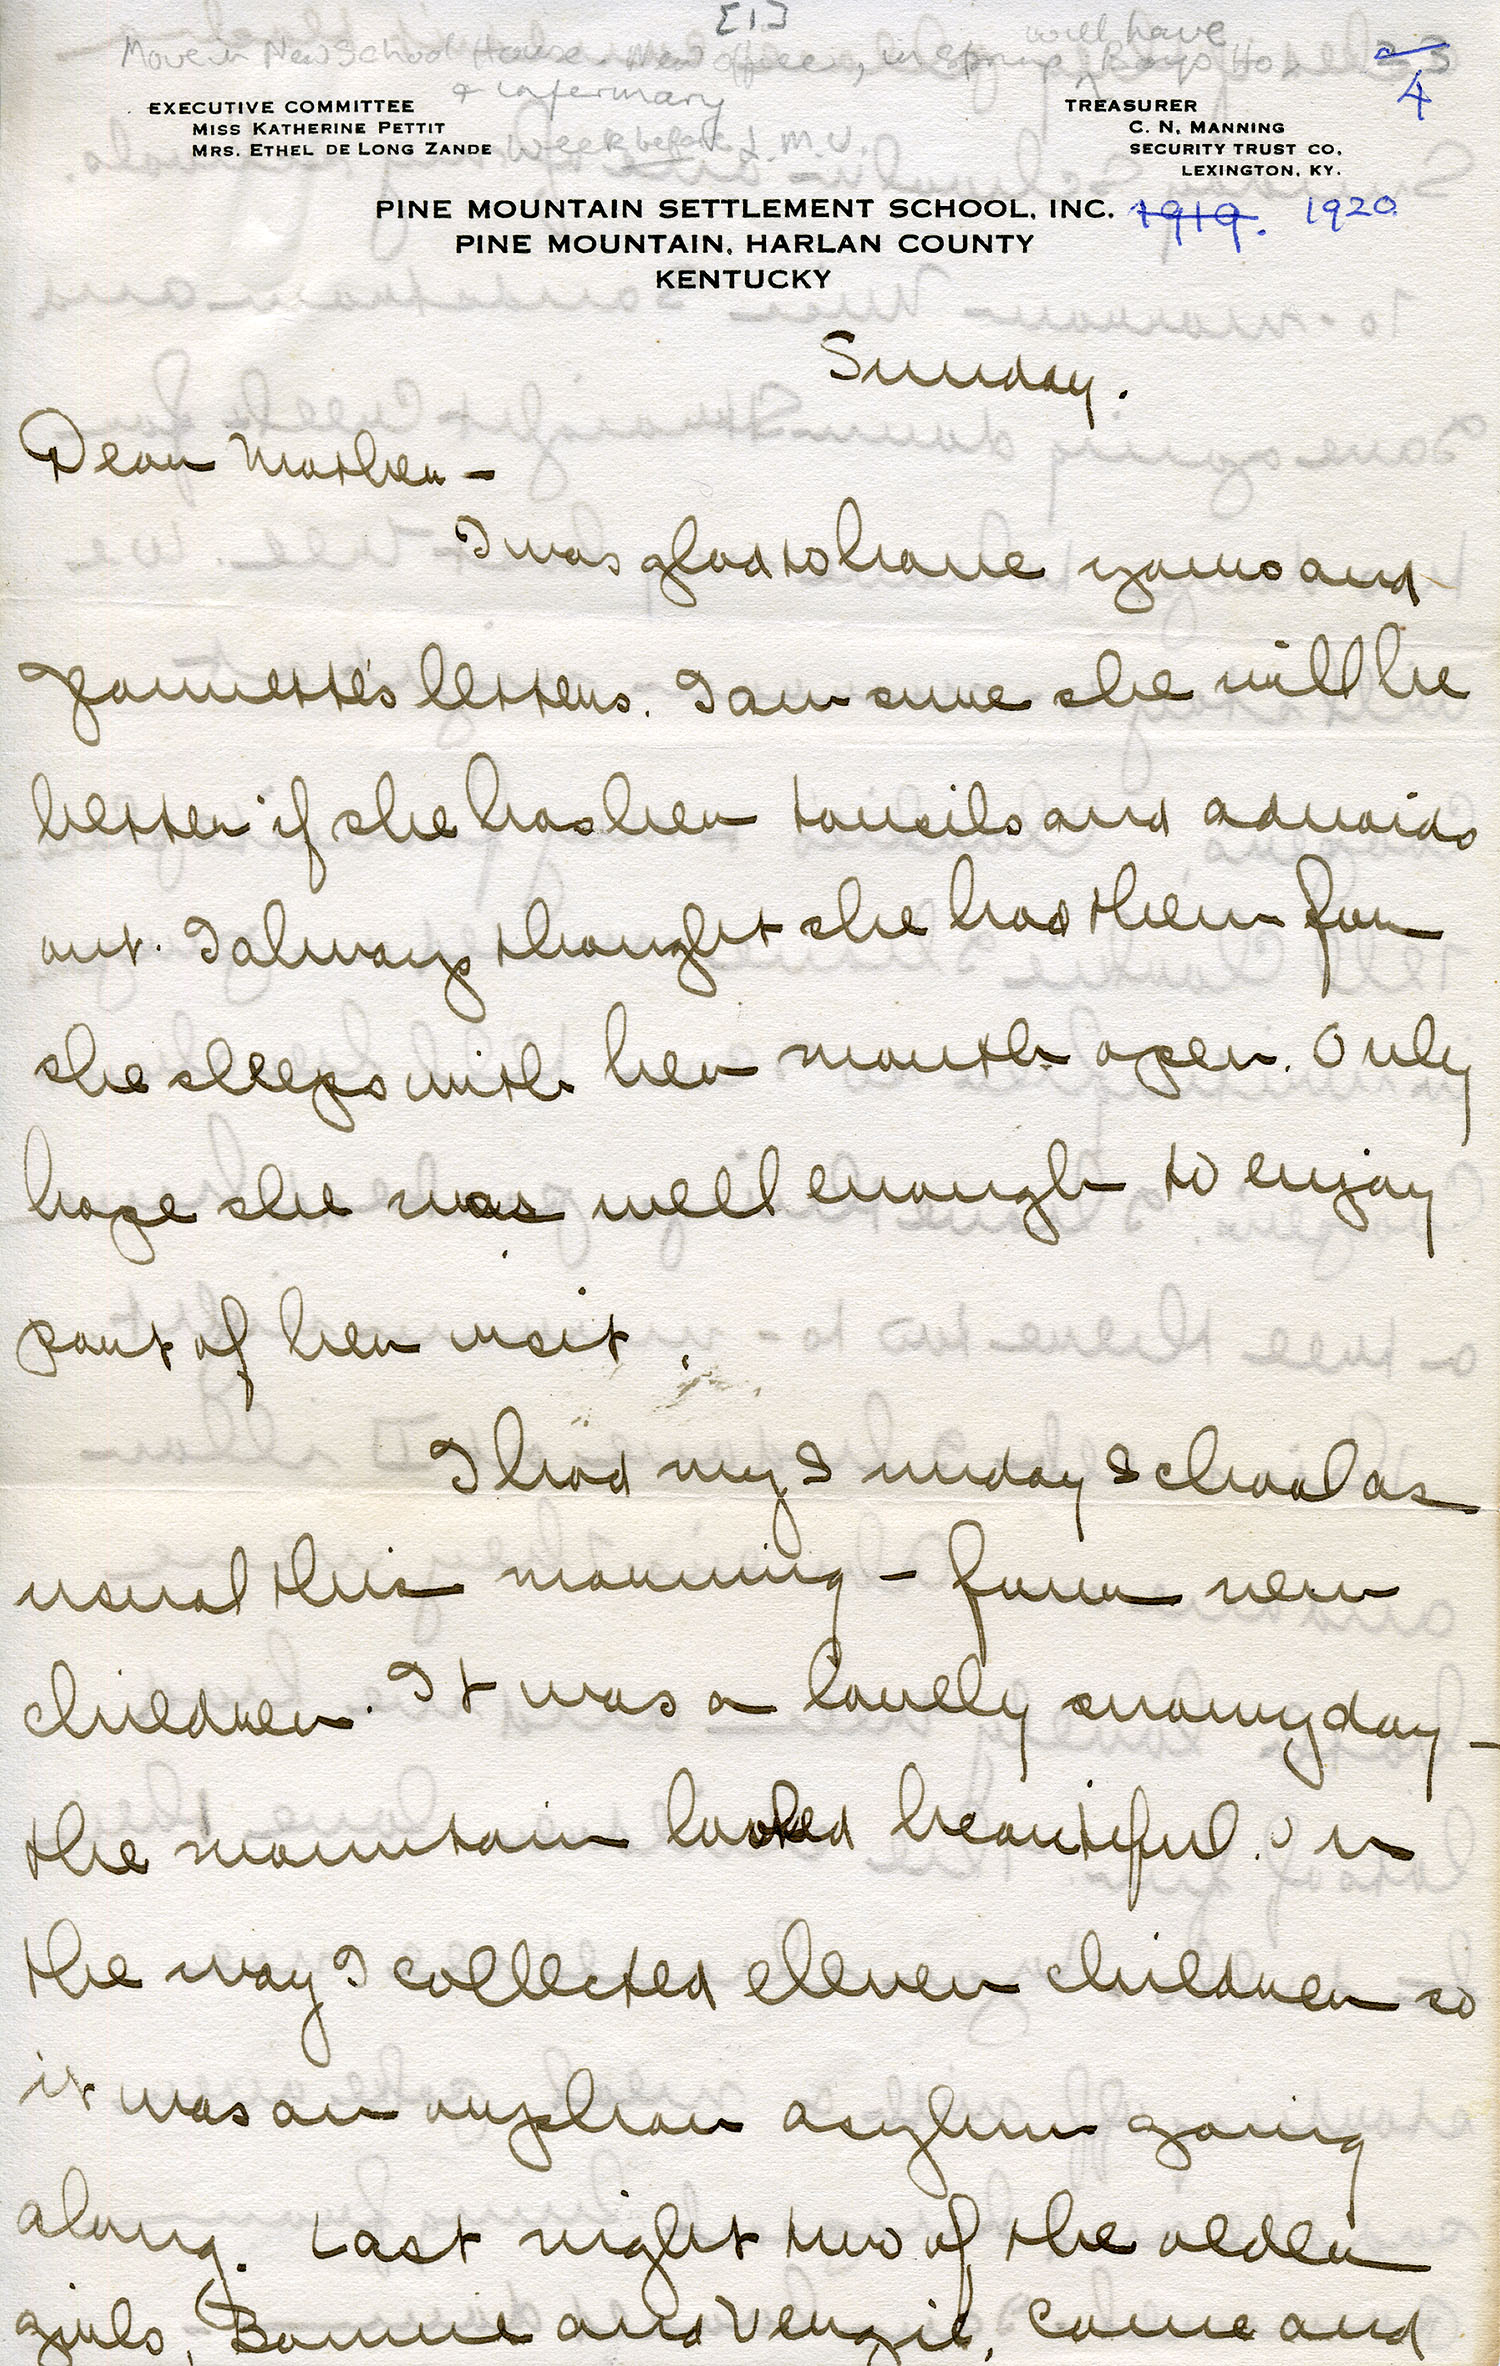 [1]
will have
Move in New School House. New office, in spring Boys Ho.
4
& infermary
EXECUTIVE COMMITTEE
MISS KATHERINE PETTIT
MRS. ETHEL DE LONG ZANDE
week before
TREASURER
C. N. MANNING
SECURITY TRUST CO.
LEXINGTON, KY.
PINE MOUNTAIN SETTLEMENT SCHOOL, INC. 1919. 1920
PINE MOUNTAIN, HARLAN COUNTY
KENTUCKY
Sunday.
Dear Mother -
I was glad to have yours and
letters. I am sure she will be
better if she has her tonsils and adnoids
out. I always thought she had them for
she sleeps with her mouth open. Only
hope she was well enough to enjoy
part of her visit.
I had my Sunday School as
usual this morning - four new
children. It was a lovely snowy day -
the mountain looked beautiful. On
the way I collected eleven children so
it was an orphan asylum going
along. Last night two of the older
girls, Bonnie and Venzie, came and